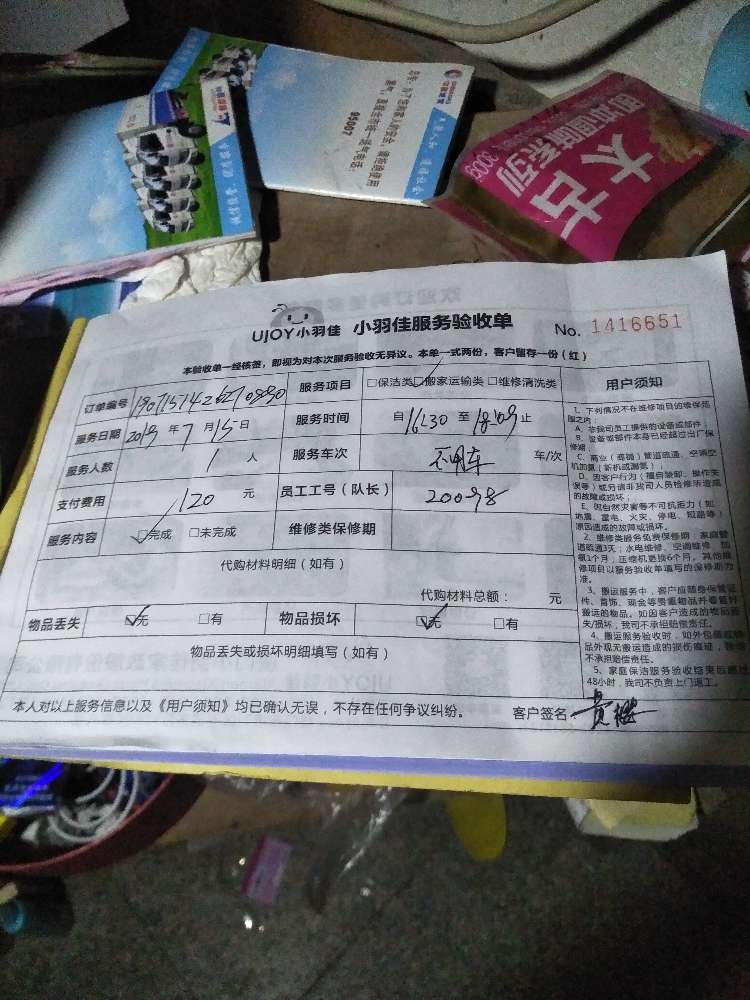 诚信服务
95007
太古
调味系列
300g
UJOY小羽佳 小羽佳服务验收单 No. 1416651
本验收单一经核签，即视为对本次服务验收无异议。本单一式两份，客户留存一份（红）
订单编号 服务项目 □保洁类 ☑搬家运输类 □维修清洗类 用户须知
服务日期 2019 年 7 月 15 日 服务时间 自 16:30 至 18:09 止
服务人数 1 人 服务车次 不用车 车/次
支付费用 120 元 员工工号（队长） 20098
服务内容 ☑完成 □未完成 维修类保修期
代购材料明细（如有）
代购材料总额： 元
物品丢失 ☑无 □有 物品损坏 ☑无 □有
物品丢失或损坏明细填写（如有）
本人对以上服务信息以及《用户须知》均已确认无误，不存在任何争议纠纷。 客户签名
1、下列情况不在维修项目的维保范
围之内：
A、非我司员工提供的设备或部件；
B、设备或部件本身已经超过出厂保
修期；
C、商业（商铺）管道疏通、空调空
机加氟（新机或漏氟）
D、因客户行为（擅自装卸、操作失
误等）或另请非我司人员检修所造成
的故障或损坏；
E、因自然灾害等不可抗力（如
地震、雷电、火灾、停电、短路等）
原因造成的故障或损坏。
2、维修类服务免费保修期：家庭管
道疏通3天；水电维修、空调维修、加
氟1个月，压缩机更换6个月。其他维
修项目以服务验收单填写的保修期为
准。
3、搬运服务中，客户应随身保管证
件、首饰、现金等贵重物品并看管好
搬运的物品。如因客户造成的物品丢
失/损坏，我司不承担赔偿责任。
4、搬运服务验收时，如外包装或物
品外观无搬运造成的损伤痕迹，
不承担赔偿责任。
5、家庭保洁服务验收结束后超过
48小时，我司不负责上门返工。